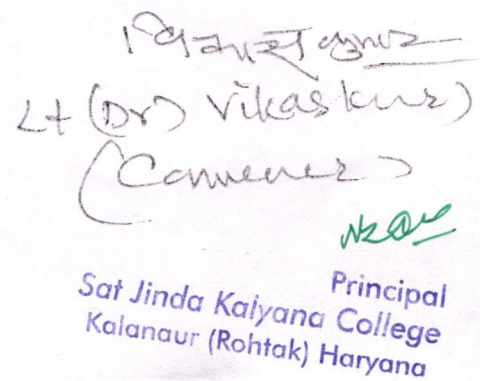 विकास कुमार
Lt (Dr) Vikas kur)
(Convener)
Principal
Sat Jinda Kalyana College
Kalanaur (Rohtak) Haryana